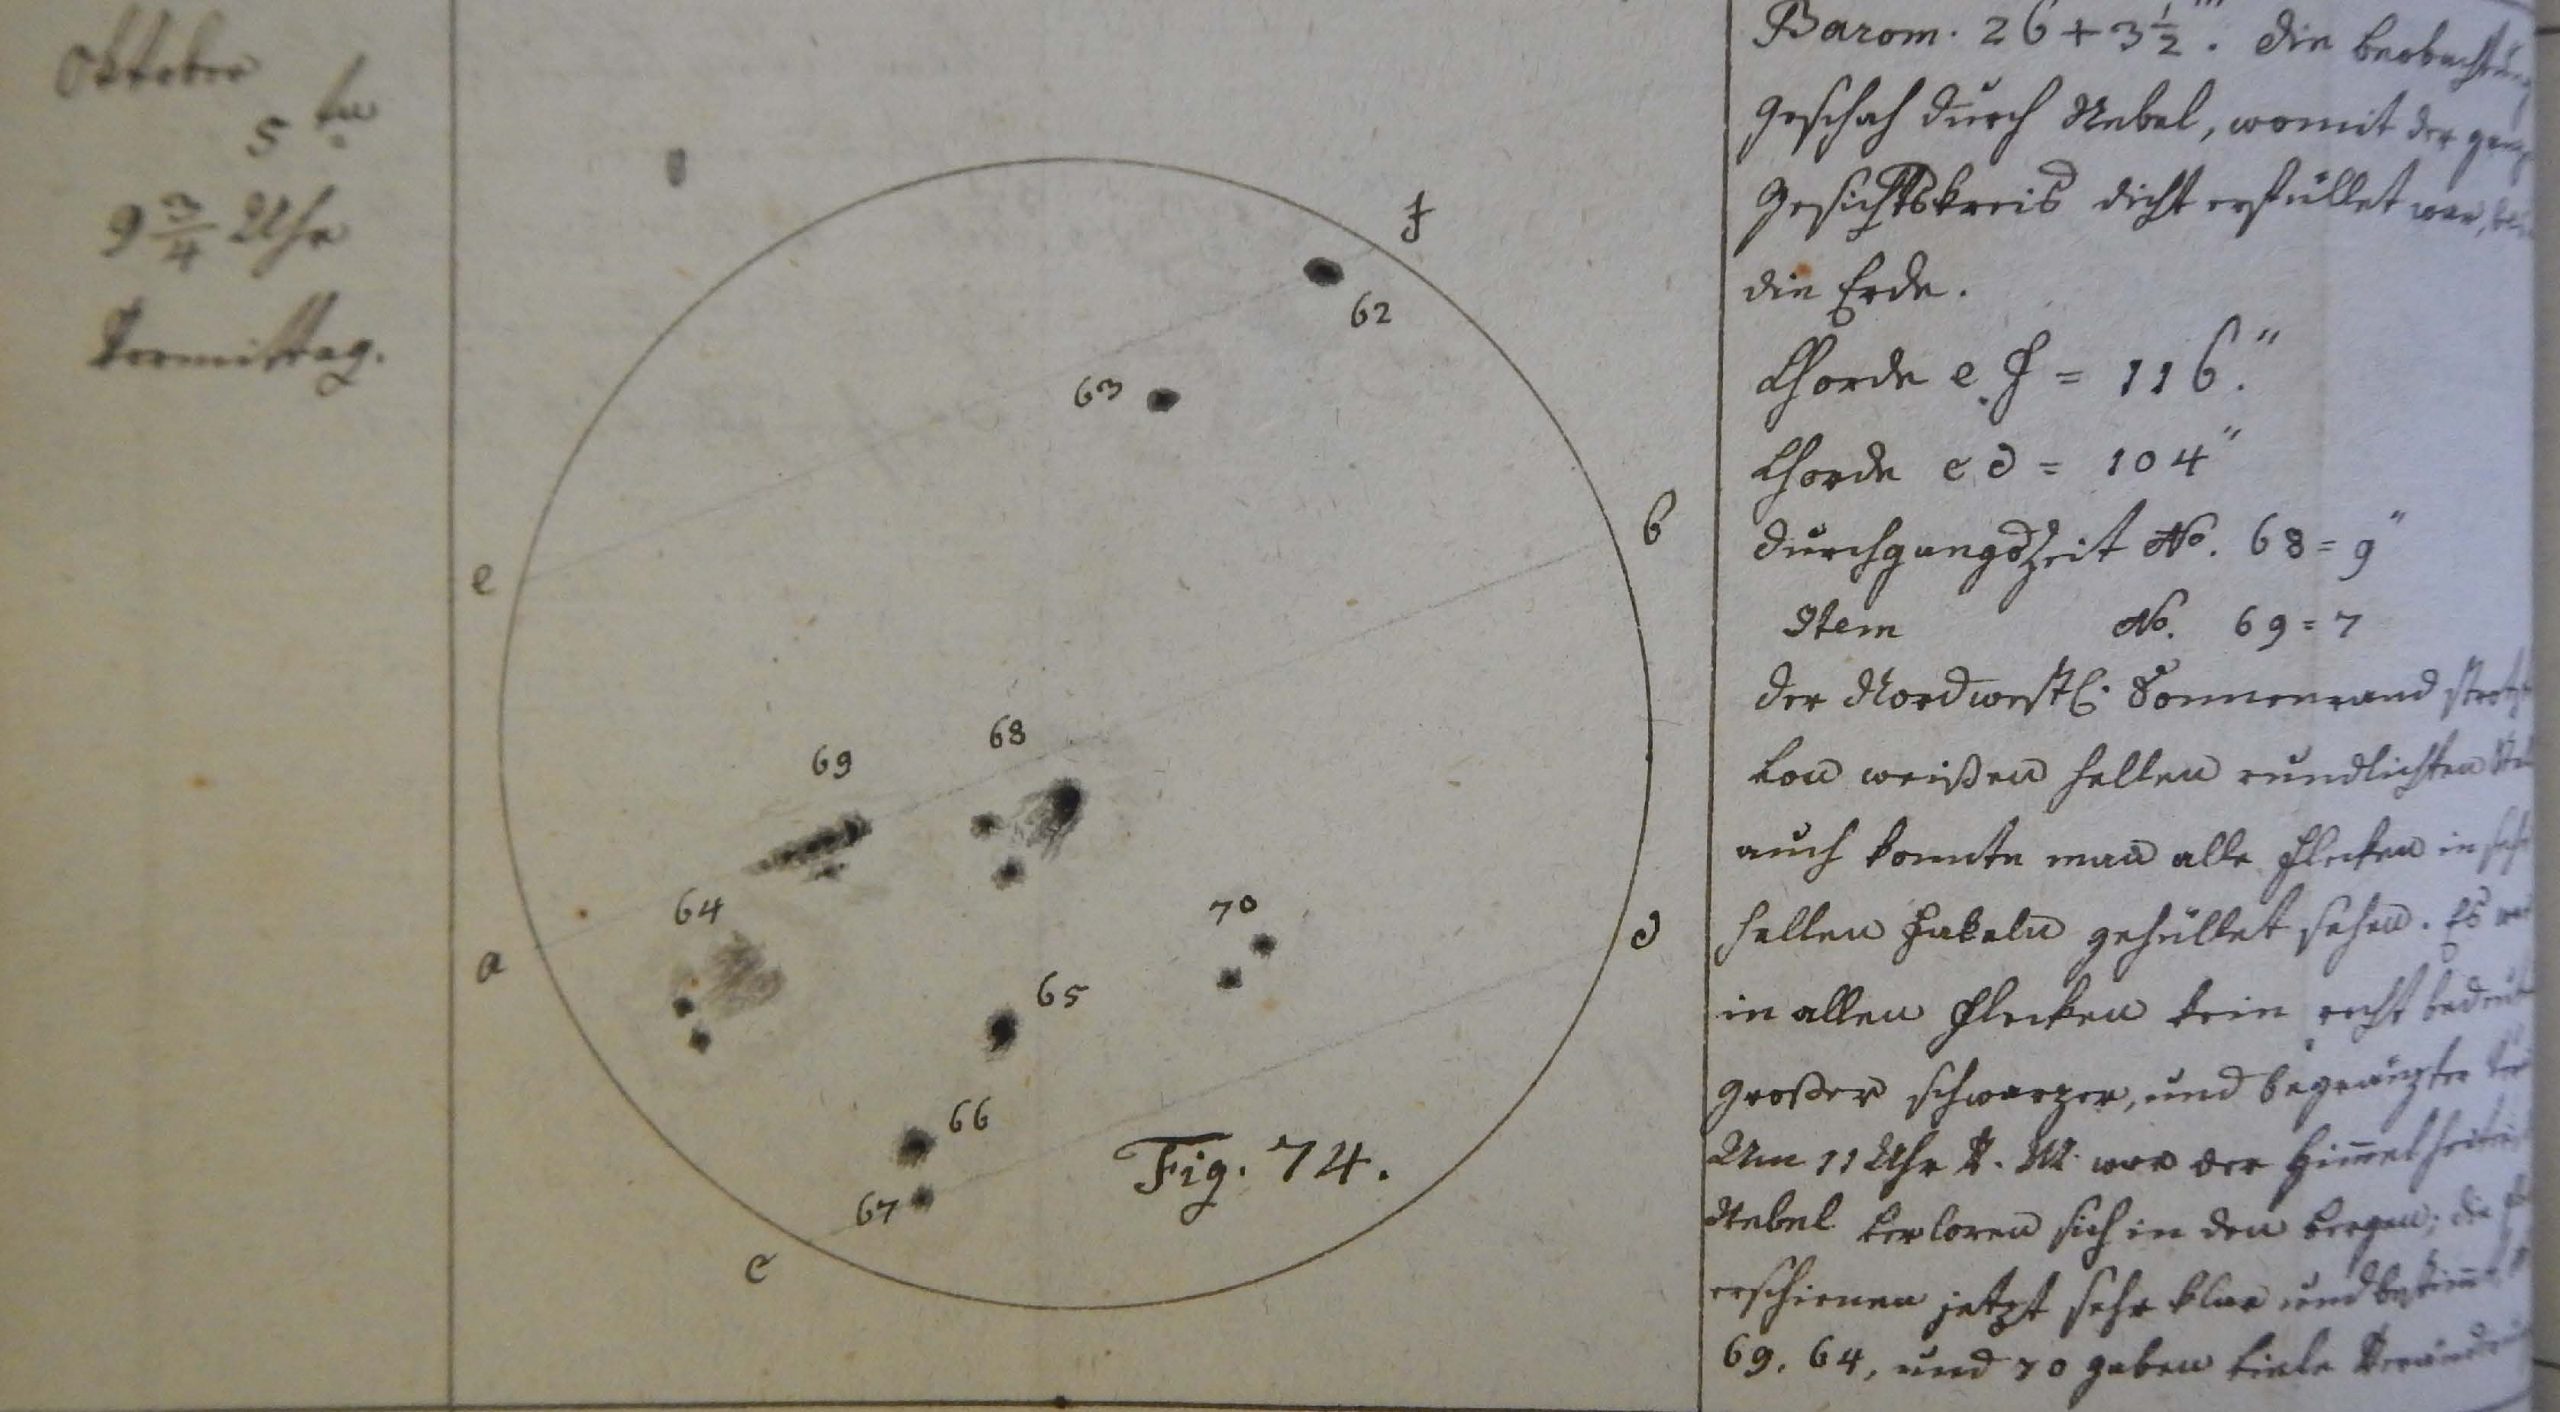 Oktober
5ten
9 3/4 Uhr
Vormittag.
f
62
63
e
b
68
69
64
a
70
d
65
66
Fig. 74.
67
c
Barom. 26 + 3 1/2 '''. Die Beobachtung
geschah durch Nebel, womit der ganze
Gesichtskreis dicht erfüllet war,
die Erde.
Chorde e f = 116."
Chorde c d = 104"
Durchgangszeit No. 68 = 9"
Item No. 69 = 7
Der Nordwestl. Sonnenrand
von weißen hellen rundlichten
auch konnte man alle Flecken in
hellen Fakeln gehüllet sehen. Es war
in allen Flecken kein recht
großer schwarzer, und begränzter
Um 11 Uhr V. M. war der Himmel
Nebel verloren sich in den Bergen; die
erschienen jetzt sehr klar und bestimmt
69. 64, und 70 gaben viele